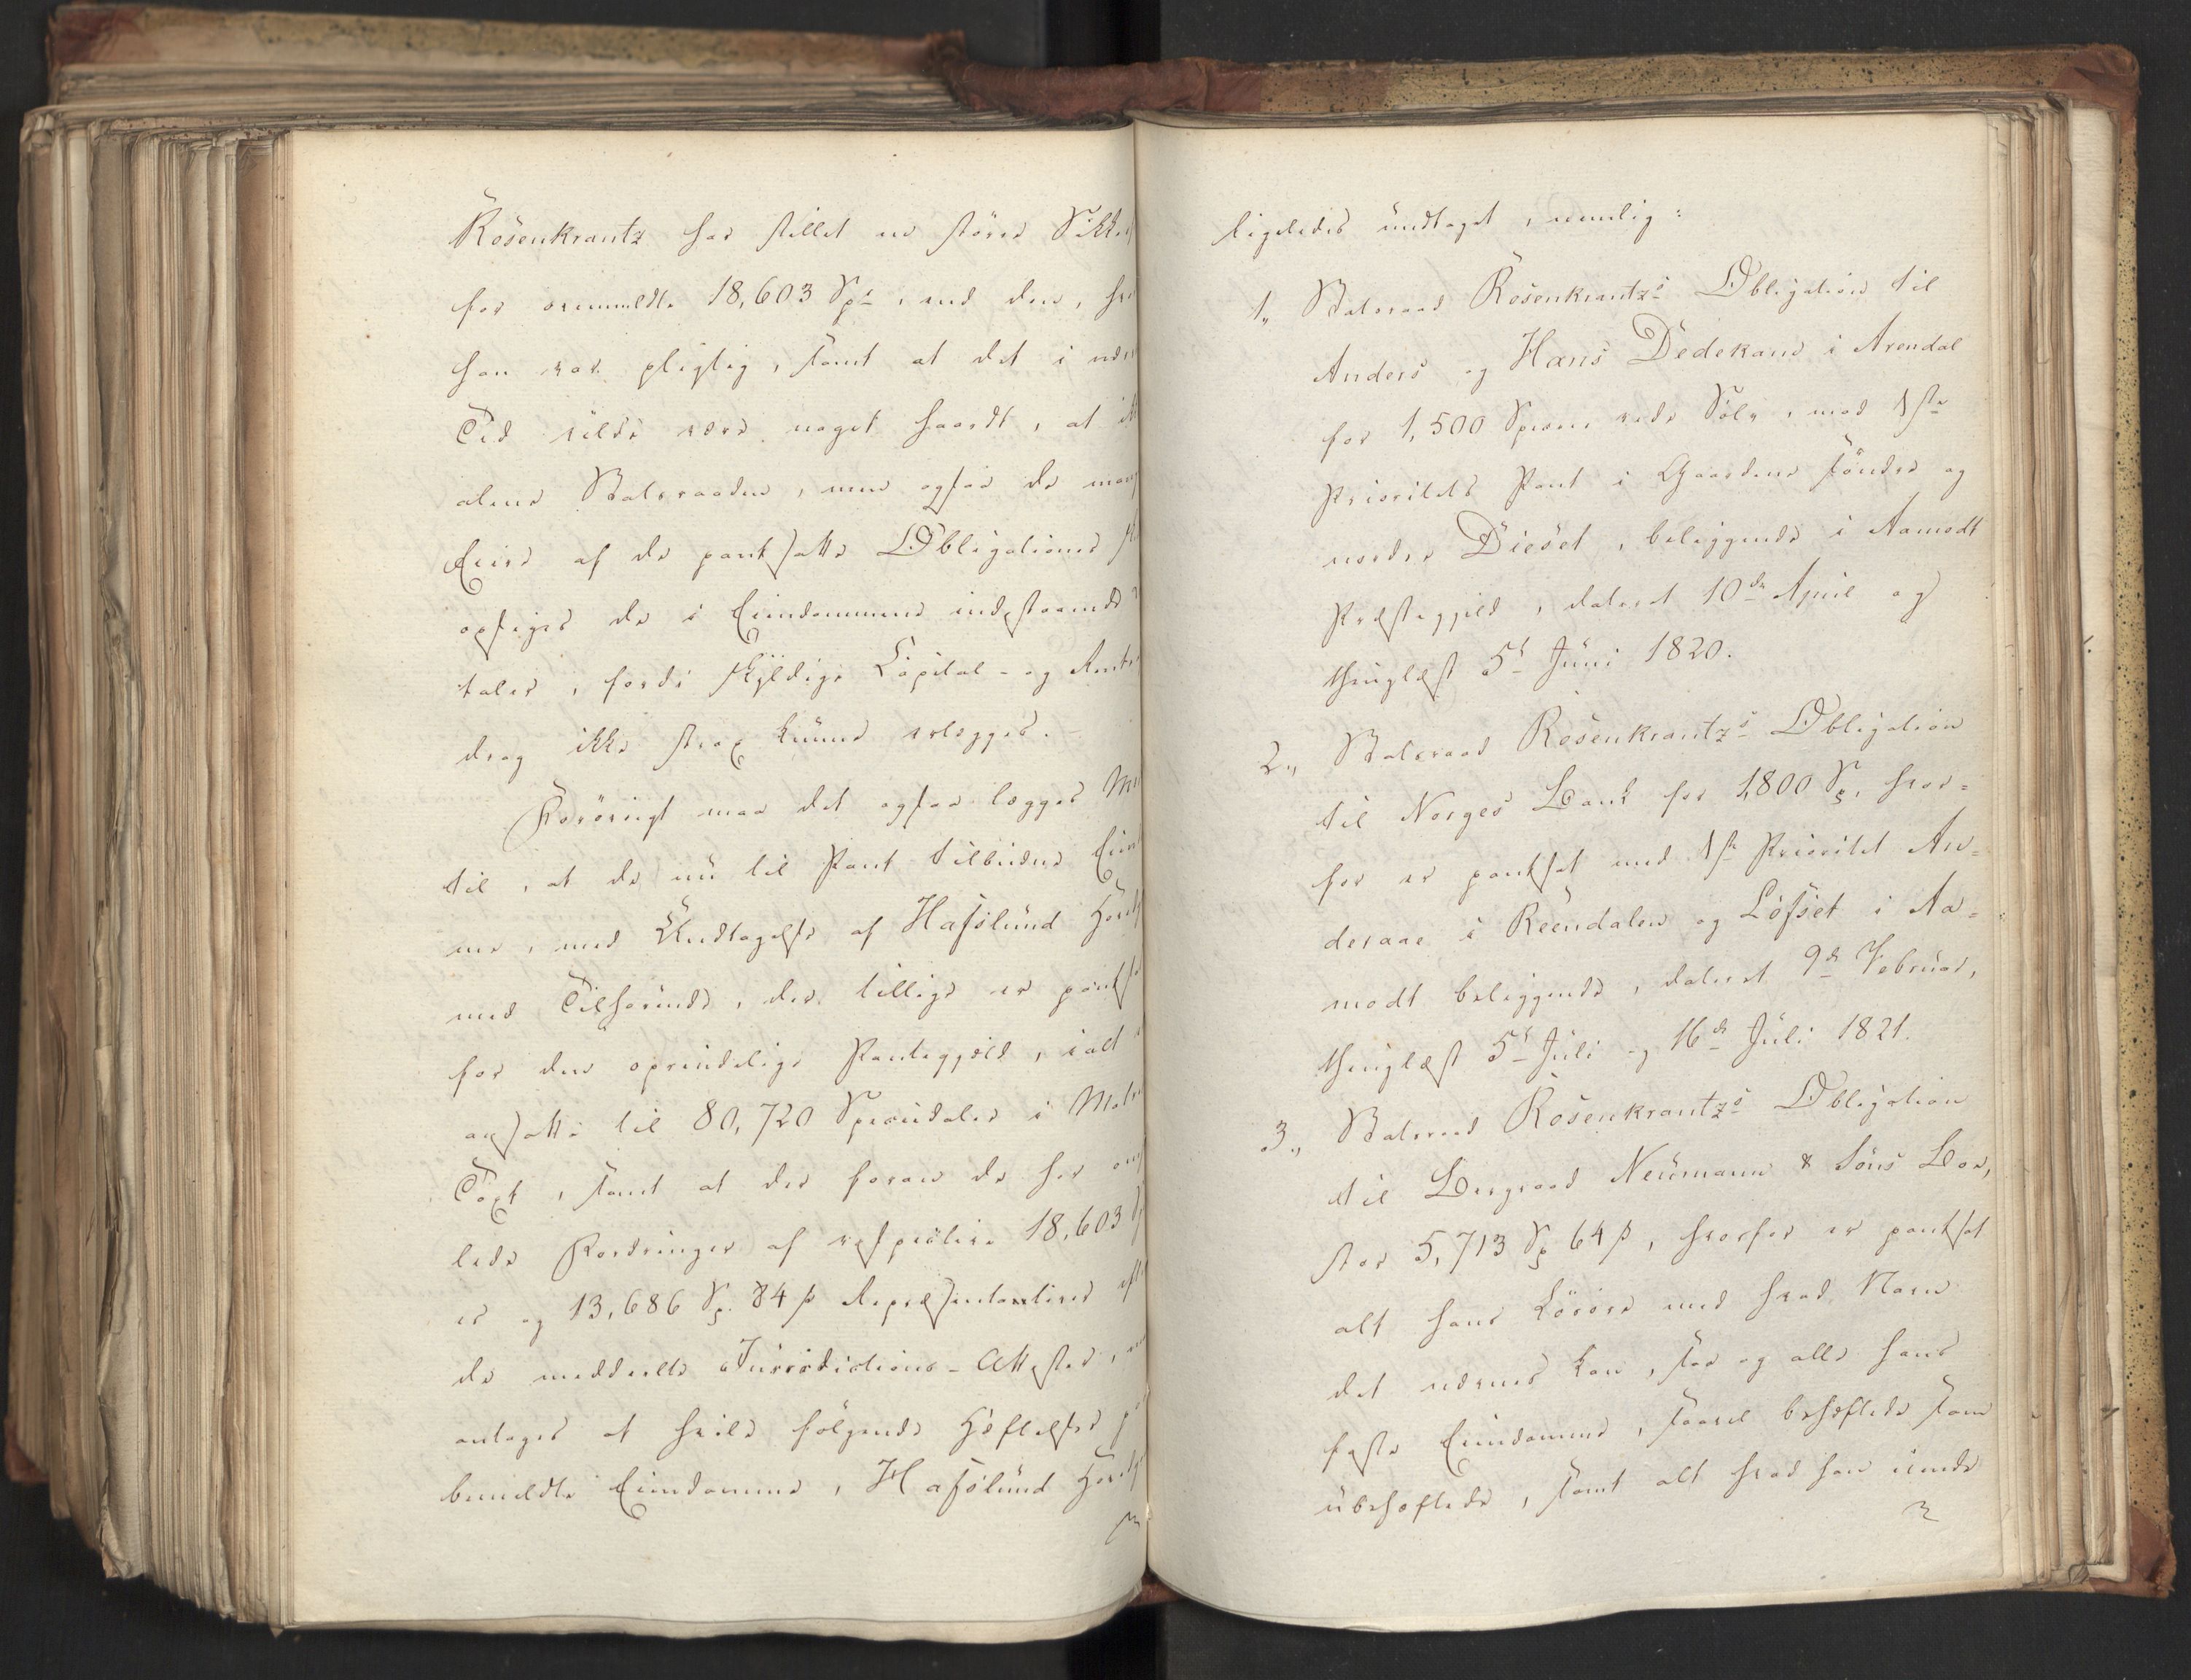 Rosenkrantz har stillet en större Sikker
for ovenmeldte 18,603 Spd, end den, hvo
han var pligtig, samt at det i nær
Tid vilde være noget haardt, at ik
alene Statsraaden, men ogsaa de mang
Eiere af de pantsatte Obligationer sk
opsiges de i Eiendommene indestaaende
taler, fordi skyldige Capital- og Rente
drag ikke strax kunne erlægges.
Forövrigt maa det ogsaa lægges Mær
til, at de nu til Pant tilbudne Eien
me, med Undtagelse af Hafslund Hoved
med Tilhörende, der tillige er pantsa
for den oprindelige Pantegjeld, ialt
ansatte til 80,720 Speciedaler i Matri
Taxt, samt at der foran de her om
lede Fordringer af respective 18,603 Sp
er og 13,686 Sp. 84 ß Repræsentantives eft
de meddeelte Jurisdictions-Attester,
antages at hvile fölgende Heftelser p
bemeldte Eiendomme, Hafslund Hovedg
ligeledes undtaget, nemlig:
1., Statsraad Rosenkrantzs Obligation til
Anders og Hans Dedekam i Arendal
for 1,500 Specier rede Sölv, med 1ste
Prioritets Pant i Gaardene söndre og
nordre Dieset, beliggende i Aamodt
Præstegjeld, dateret 10de April og
thinglæst 5t Juni 1820.
2., Statsraad Rosenkrantzs Obligation
til Norges Bank for 1,800 Sp, hvor=
for er pantsat med 1ste Prioritet An=
deraae i Reendalen og Löfset i Aa=
modt beliggende, dateret 9de Februar,
thinglæst 5t Juli og 16de Juli 1821.
3., Statsraad Rosenkrantzs Obligation
til Bergraad Neumann & Söns Boe,
stor 5,713 Sp 64 ß, hvorfor er pantsat
alt hans Lösöre med hvad Navn
det nævnes kan, saa og alle hans
faste Eiendomme, saavel beheftede som
ubeheftede, samt alt hvad han eiende